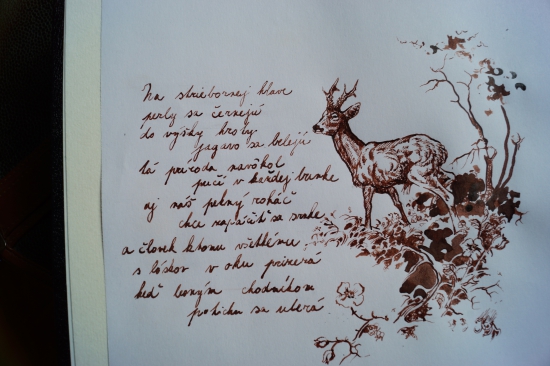 Na striebornej hlave
perly sa černejú
do výšky hroty
jagavo sa belejú
tá príroda navôkol
pučí v každej bunke
aj náš pekný roháč
chce zapáčiť sa srnke
a človek k tomu všetkému
s láskou v oku prizerá
keď lesným chodníkom
potichu sa uberá